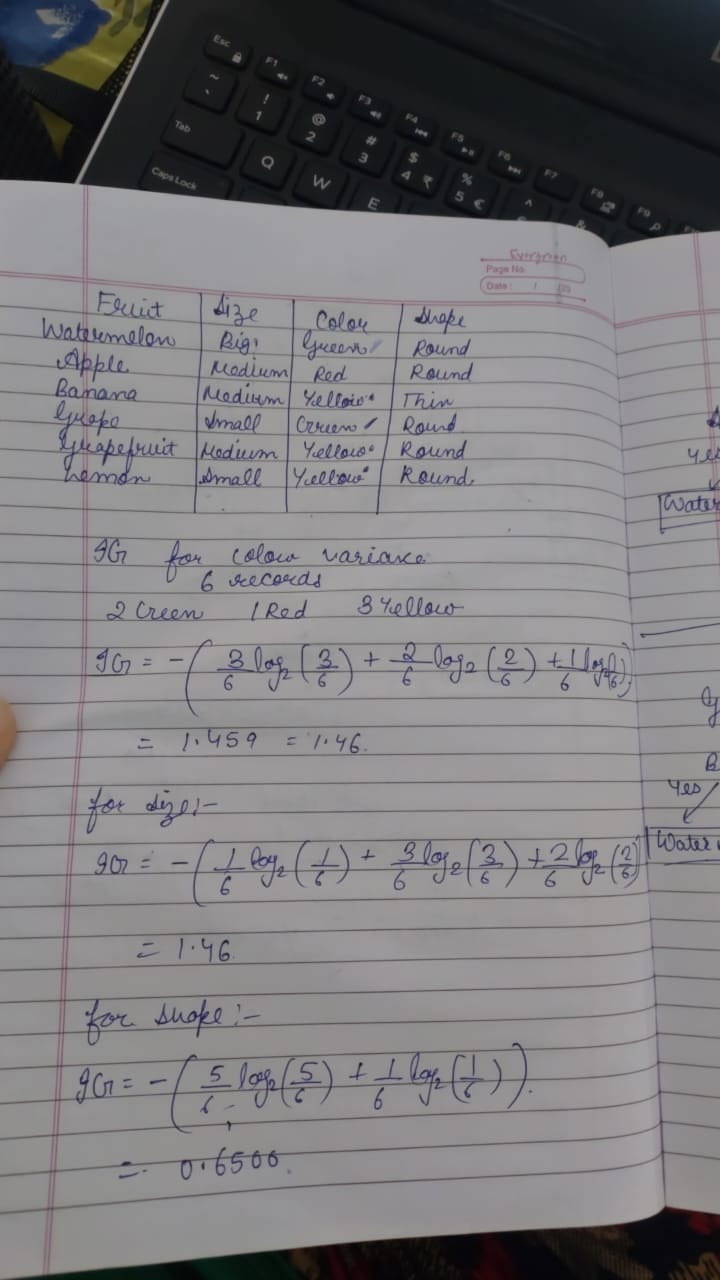 Esc F1 F2 F3 F4 F5 F6 F7 F8 F9
~ ` ! 1 @ 2 # 3 $ 4 ₹ % 5 € ^ &
Tab Q W E
Caps Lock
Evergreen
Page No.
Date : / /20
Fruit Size Color Shape
Watermelon Big Green Round
Apple Medium Red Round
Banana Medium Yellow Thin
Grape Small Green Round
Grapefruit Medium Yellow Round
Lemon Small Yellow Round
IG for colour variance
6 records
2 Green 1 Red 3 Yellow
IG = -( 3/6 log2 (3/6) + 2/6 log2 (2/6) + 1/6 log2(1/6) )
= 1.459 = 1.46.
for size:-
IG = -( 1/6 log2 (1/6) + 3/6 log2 (3/6) + 2/6 log2 (2/6)
= 1.46.
for shape:-
IG = -( 5/6 log2 (5/6) + 1/6 log2 (1/6) ).
= 0.6500.
Yes
Water
Yes
Water